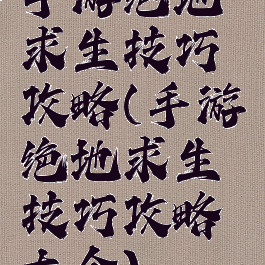 手游绝地
求生技巧
攻略(手游
绝地求生
技巧攻略
大全)